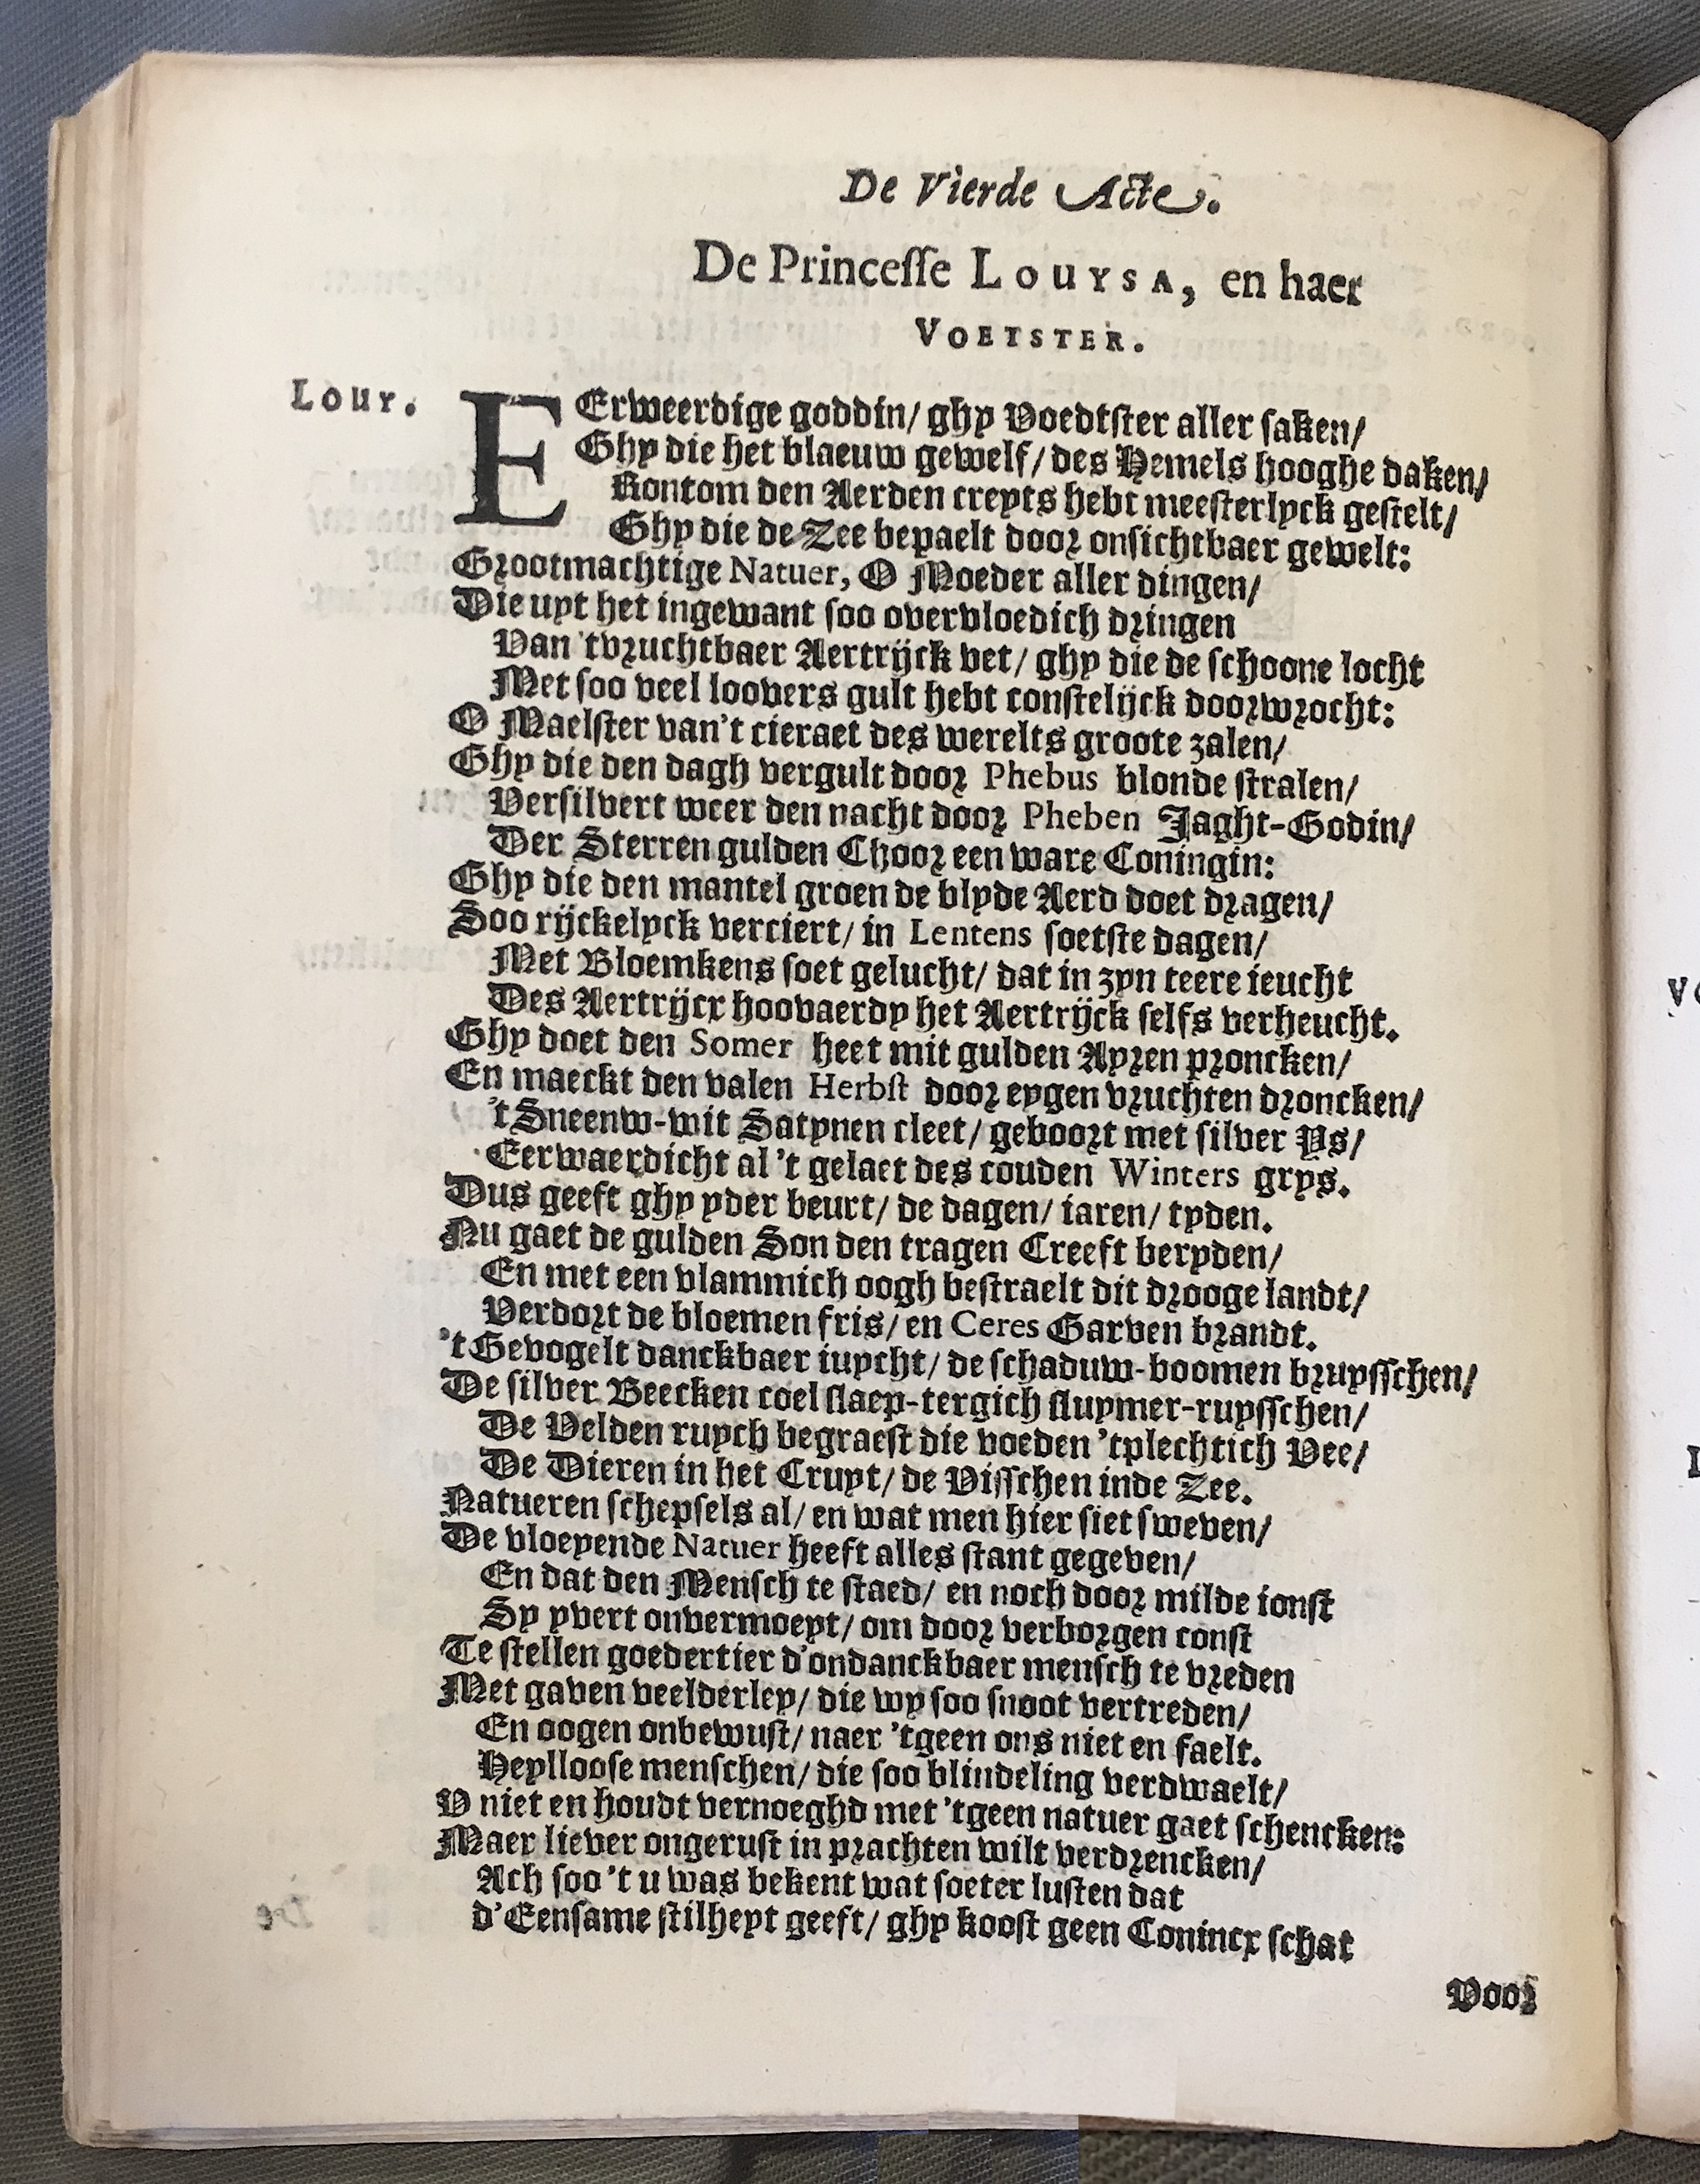 De Vierde Acte.
De Princesse LOUYSA, en haer
VOETSTER.
LOUY. EErweerdige goddin/ ghy Voedtster aller saken/
Ghy die het blaeuw gewelf/ des Hemels hooghe daken/
Rontom den Aerden creyts hebt meesterlyck gestelt/
Ghy die de Zee bepaelt door onsichtbaer gewelt:
Grootmachtige Natuer, O Moeder aller dingen/
Die uyt het ingewant soo overvloedich dringen
Van 'tvruchtbaer Aertrijck vet/ ghy die de schoone locht
Met soo veel loovers gult hebt constelijck doorwrocht:
O Maelster van't cieraet des werelts groote zalen/
Ghy die den dagh vergult door Phebus blonde stralen/
Versilvert weer den nacht door Pheben Jaght-Godin/
Der Sterren gulden Choor een ware Coningin:
Ghy die den mantel groen de blyde Aerd doet dragen/
Soo rijckelyck verciert/ in Lentens soetste dagen/
Met Bloemkens soet gelucht/ dat in zyn teere ieucht
Des Aertrijcx hoovaerdy het Aertrijck selfs verheucht.
Ghy doet den Somer heet mit gulden Ayren proncken/
En maeckt den valen Herbst door eygen vruchten droncken/
't Sneenw-wit Satynen cleet/ geboort met silver Ys/
Eerwaerdicht al 't gelaet des couden Winters grys.
Dus geeft ghy yder beurt/ de dagen/ iaren/ tyden.
Nu gaet de gulden Son den tragen Creeft beryden/
En met een vlammich oogh bestraelt dit drooge landt/
Verdort de bloemen fris/ en Ceres Garven brandt.
't Gevogelt danckbaer iuycht/ de schaduw-boomen bruysschen/
De silver Beecken coel slaep-tergich sluymer-ruysschen/
De Velden ruych begraest die voeden 'tplechtich Vee/
De Dieren in het Cruyt/ de Visschen inde Zee.
Natueren schepsels al/ en wat men hier siet sweven/
De vloeyende Natuer heeft alles stant gegeven/
En dat den Mensch te staed/ en noch door milde ionst
Sy yvert onvermoeyt/ om door verborgen const
Te stellen goedertier d'ondanckbaer mensch te vreden
Met gaven veelderley/ die wy soo snoot vertreden/
En oogen onbewust/ naer 'tgeen ons niet en faelt.
Heylloose menschen/ die soo blindeling verdwaelt/
V niet en houdt vernoeghd met 'tgeen natuer gaet schencken:
Maer liever ongerust in prachten wilt verdrencken/
Ach soo 't u was bekent wat soeter lusten dat
d'Eensame stilheyt geeft/ ghy koost geen Conincx schat
Voor